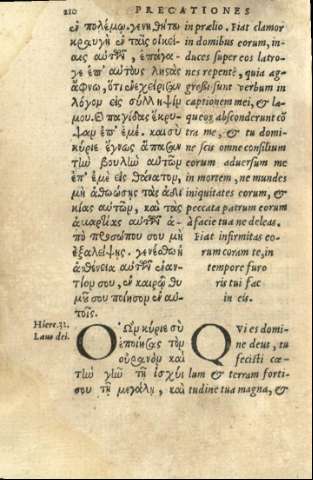 210 PRECATIONES
ἐν πολέμῳ. γενηθήτω
κραυγὴ ἐν ταῖς οἰκεί-
αις αὐτῶν, ἐπάγα-
γε ἐπ' αὐτοὺς λῃστὰς
ἄφνω, ὅτι ἐνεχείρισαν
λόγον εἰς σύλληψίν
μου. Θ παγίδας ἔκρυ-
ψαν ἐπ' ἐμέ. καὶ σὺ
κύριε ἔγνως ἅπασαν
τὴν βουλὴν αὐτῶν
ἐπ' ἐμὲ εἰς θάνατον,
μὴ ἀθωώσῃς τὰς ἀδι
κίας αὐτῶν, καὶ τὰς
ἁμαρτίας αὐτῶν ἀ-
πὸ προσώπου σου μὴ
ἐξαλείψῃς. γενέσθω ἡ
ἀσθένεια αὐτῶν ἐναν-
τίον σου, ἐν καιρῷ θυ
μοῦ σου ποίησον ἐν αὐ-
τοῖς.
in prælio. Fiat clamor
in domibus eorum, in-
duces super eos latro-
nes repentè, quia ag-
gressi sunt verbum in
captionem mei, & la-
queos absconderunt cō
tra me, & tu domi-
ne scis omne consilium
eorum aduersum me
in mortem, ne mundes
iniquitates eorum, &
peccata patrum eorum
à facie tua ne deleas.
Fiat infirmitas eo-
rum coram te, in
tempore furo
ris tui fac
in eis.
Hiere. 32.
Laus dei.
Ο Ὢν κύριε σὺ
ἐποίησας τὸν
οὐρανὸν καὶ
τὴν γῆν τῇ ἰσχύϊ
σου τῇ μεγάλῃ, καὶ
QVi es domi-
ne deus, tu
fecisti cœ-
lum & terram forti-
tudine tua magna, &